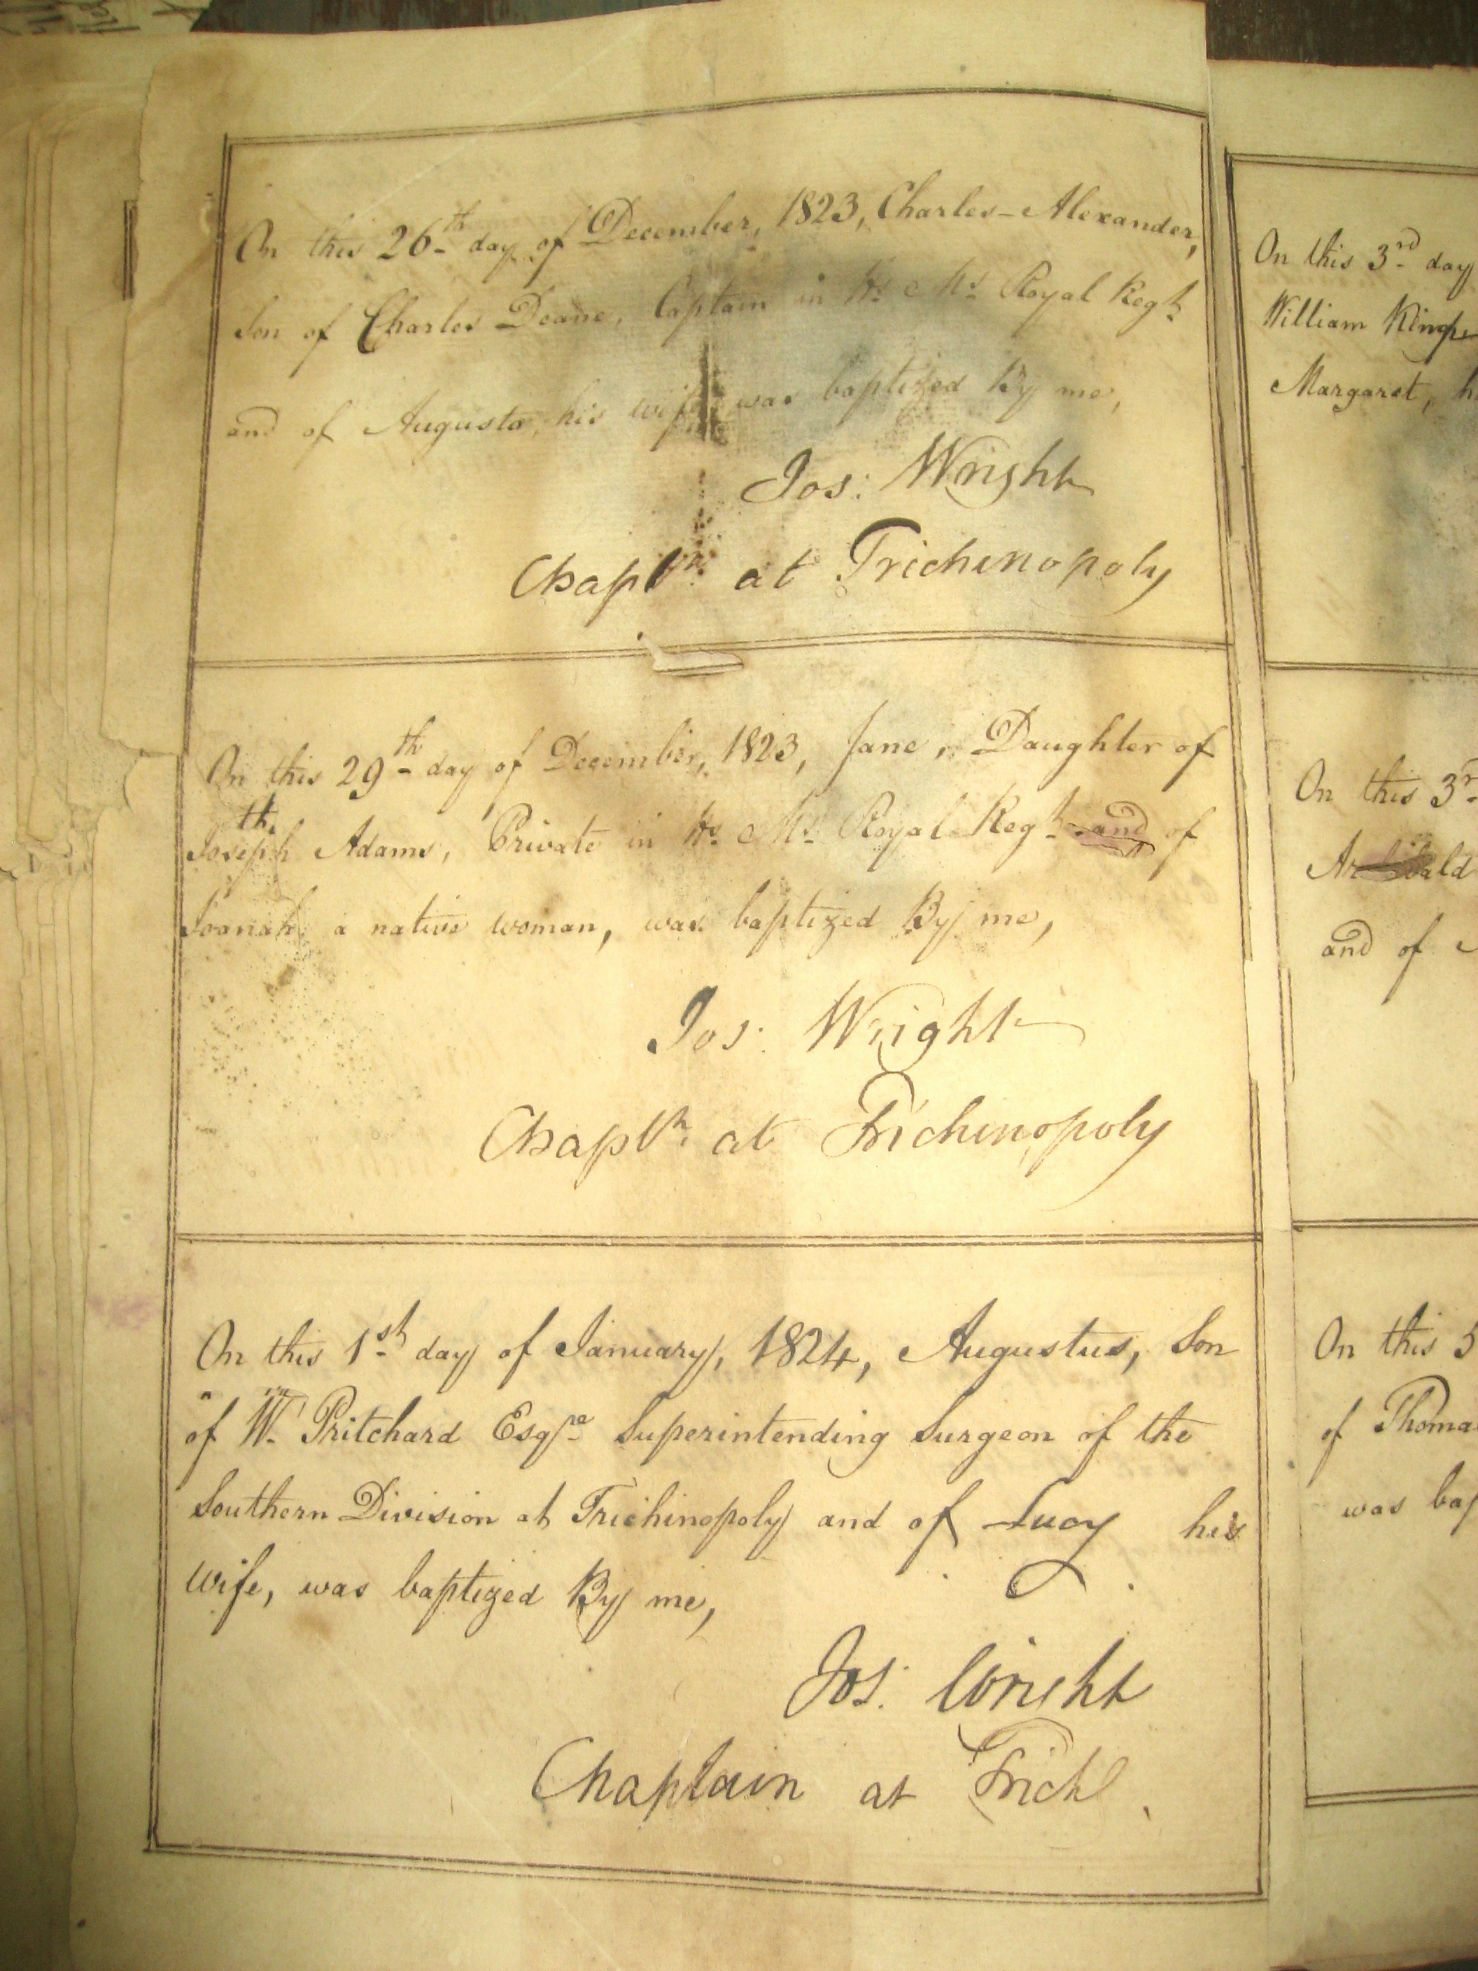 On this 26th day of December, 1823, Charles-Alexander,
Son of Charles Deane, Captain in Hs. Ms. Royal Regt.
and of Augusta, his wife, was baptized By me,
Jos: Wright
Chapln. at Trichinopoly
On this 29th day of December, 1823, Jane, Daughter of
th
Joseph Adams, Private in Hs. Ms. Royal Regt. and of
a native woman, was baptized By me,
Jos: Wright
Chapln. at Trichinopoly
On this 1st day of January, 1824, Augustus, Son
of Wm. Pritchard Esqre. Superintending Surgeon of the
Southern Division at Trichinopoly and of Lucy his
wife, was baptized By me,
Jos: Wright
Chaplain at Trichl.
On this 3rd day
William
Margaret, h
On this 3r
Archibald
and of
On this 5
of Thoma
was bap